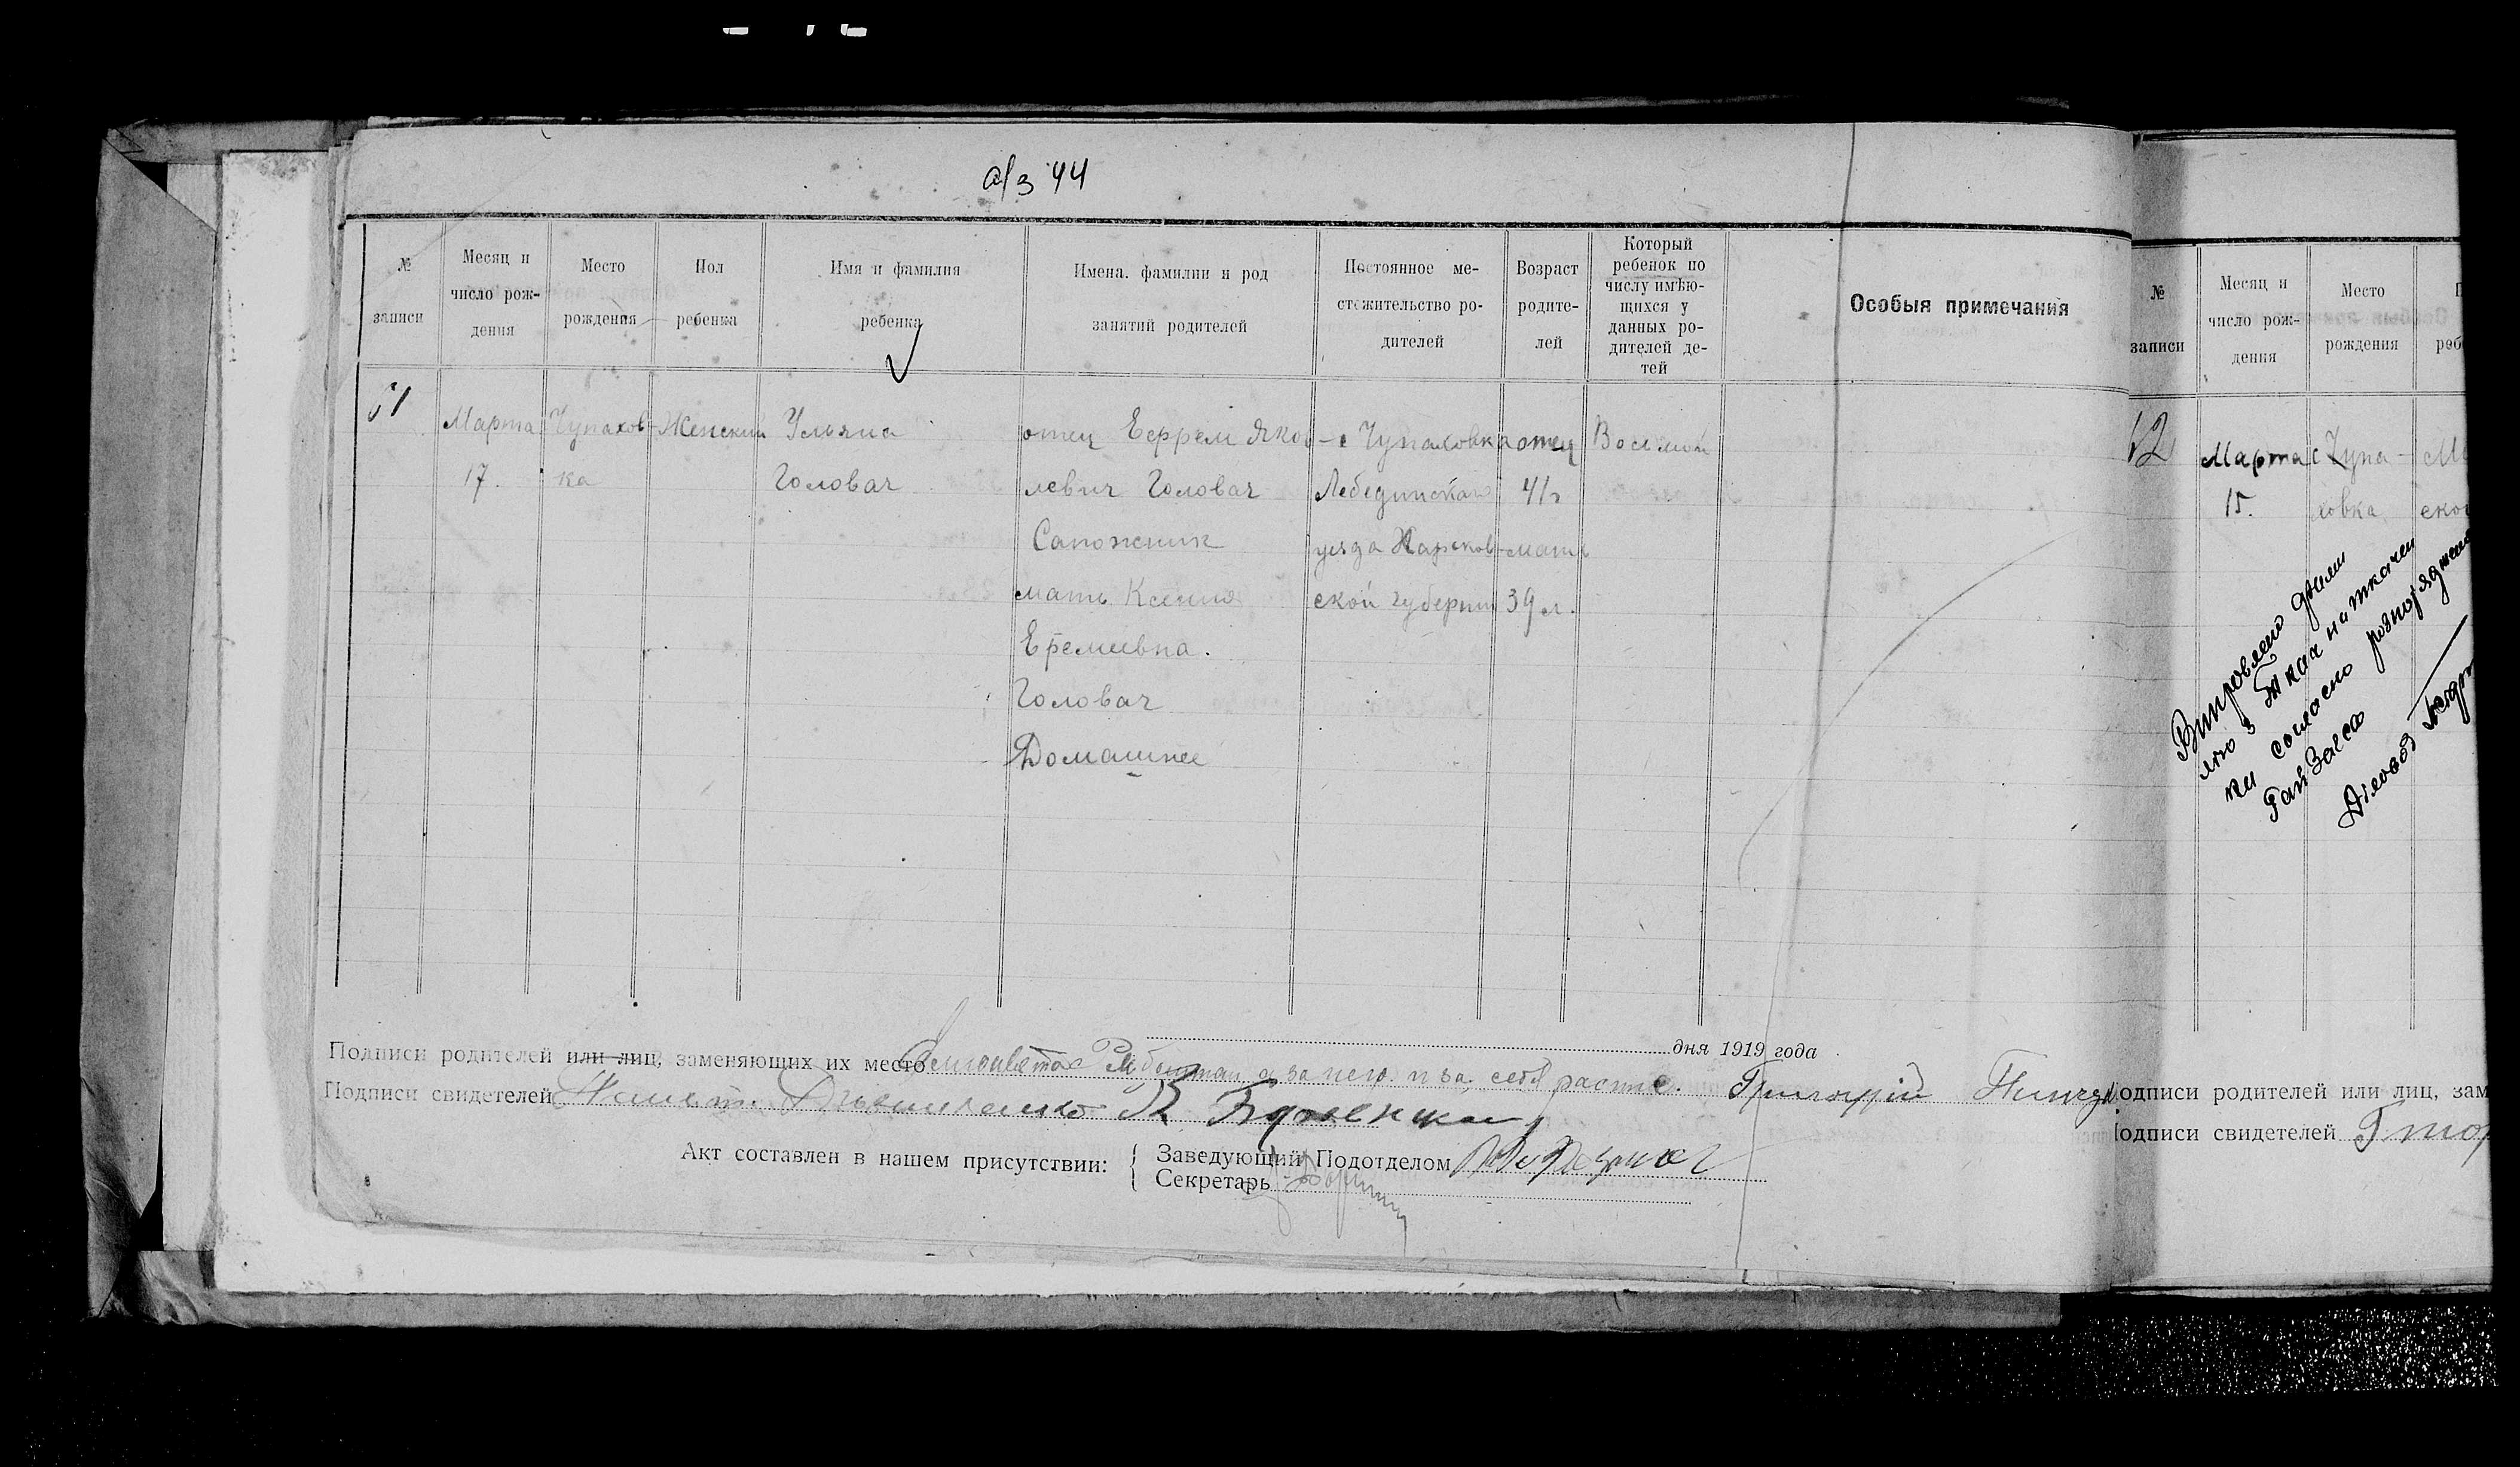 а/з 44
№ записи
Месяц и число рождения
Место рождения
Пол ребенка
Имя и фамилия ребенка
Имена. фамилии и род занятий родителей
Постоянное местожительство родителей
Возраст родителей
Который ребенок по числу имѣющихся у данных родителей детей
Особыя примечания
Марта
17.
Чупахов-
ка
Женский
Ульяна
Головач
отец Ефрем Яков-
левич Головач
Сапожник
мать Ксения
Еремеевна.
Головач
Домашнее
с Чупаховка
Лебединскаго
уезда Харьков-
ской губернии
отец
41 г
мать
39 л.
Восьмой
дня 1919 года
Подписи родителей или лиц, заменяющих их место
а за него и за себя расп
Григорій
Подписи свидетелей
Акт составлен в нашем присутствии:
Заведующий Подотделом
Секретарь
№
записи
Месяц и
число рож-
дения
Место
рождения
12
Марта
15.
с Чупа-
ховка
Виправлено
з Ткач на Ткачен
ки согласно розпоряджен
РайЗагса
Діловод
Подписи родителей или лиц, зам
Подписи свидетелей